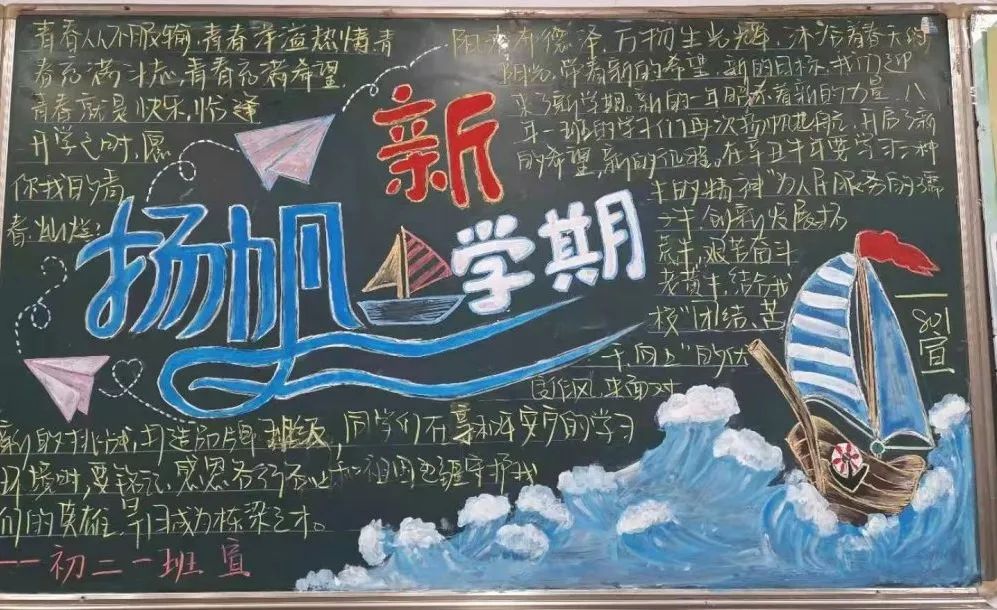 青春从不服输,青春洋溢热情,青
春充满斗志,青春充满希望,
青春就是快乐,恰逢
开学之时,愿
你我的青
春灿烂!
扬帆
新
学期
阳春布德泽,万物生光辉。沐浴着春天的
阳光,带着新的希望、新的目标,我们迎
来了新学期。新的一年昭示着新的力量,八
年一班的学子们再次扬帆起航,开启了新
的希望,新的征程。在辛丑牛年要学习三种
牛的精神"为人民服务的孺
子牛,创新发展拓
荒牛,艰苦奋斗
老黄牛,结合我
校"团结、苦
干、向上"的优
良作风,来面对
新的挑战,打造品牌班级,同学们在享和平安宁的学习
环境时,要铭记、感恩各行各业和祖国边疆守护我
们的英雄,早日成为栋梁之才。
——初二一班 宣
801
宣